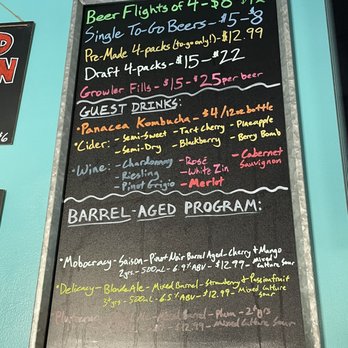 Beer Flights of 4 - $8
Single To-Go Beers - $5-$8
Pre-Made 4-packs (to-go only!) - $12.99
Draft 4-packs - $15 - $22
Growler Fills - $15 - $25 per beer
GUEST DRINKS:
• Panacea Kombucha - $4/12oz bottle
• Cider: - Semi-Sweet - Tart Cherry - Pineapple
- Semi-Dry - Blackberry - Berry Bomb
• Wine: - Chardonnay - Rosé - Cabernet Sauvignon
- Riesling - White Zin
- Pinot Grigio - Merlot
BARREL-AGED PROGRAM:
• Mobocracy - Saison - Pinot Noir Barrel Aged - Cherry & Mango
2yrs - 500mL - 6.9% ABV - $12.99 - Mixed Culture Sour
• Delicacy - Blonde Ale - Mixed Barrel - Strawberry & Passionfruit
3yrs - 500mL - 6.5% ABV - $12.99 - Mixed Culture Sour
Barrel - Plum - 2yrs
- $12.99 - Mixed Culture Sour